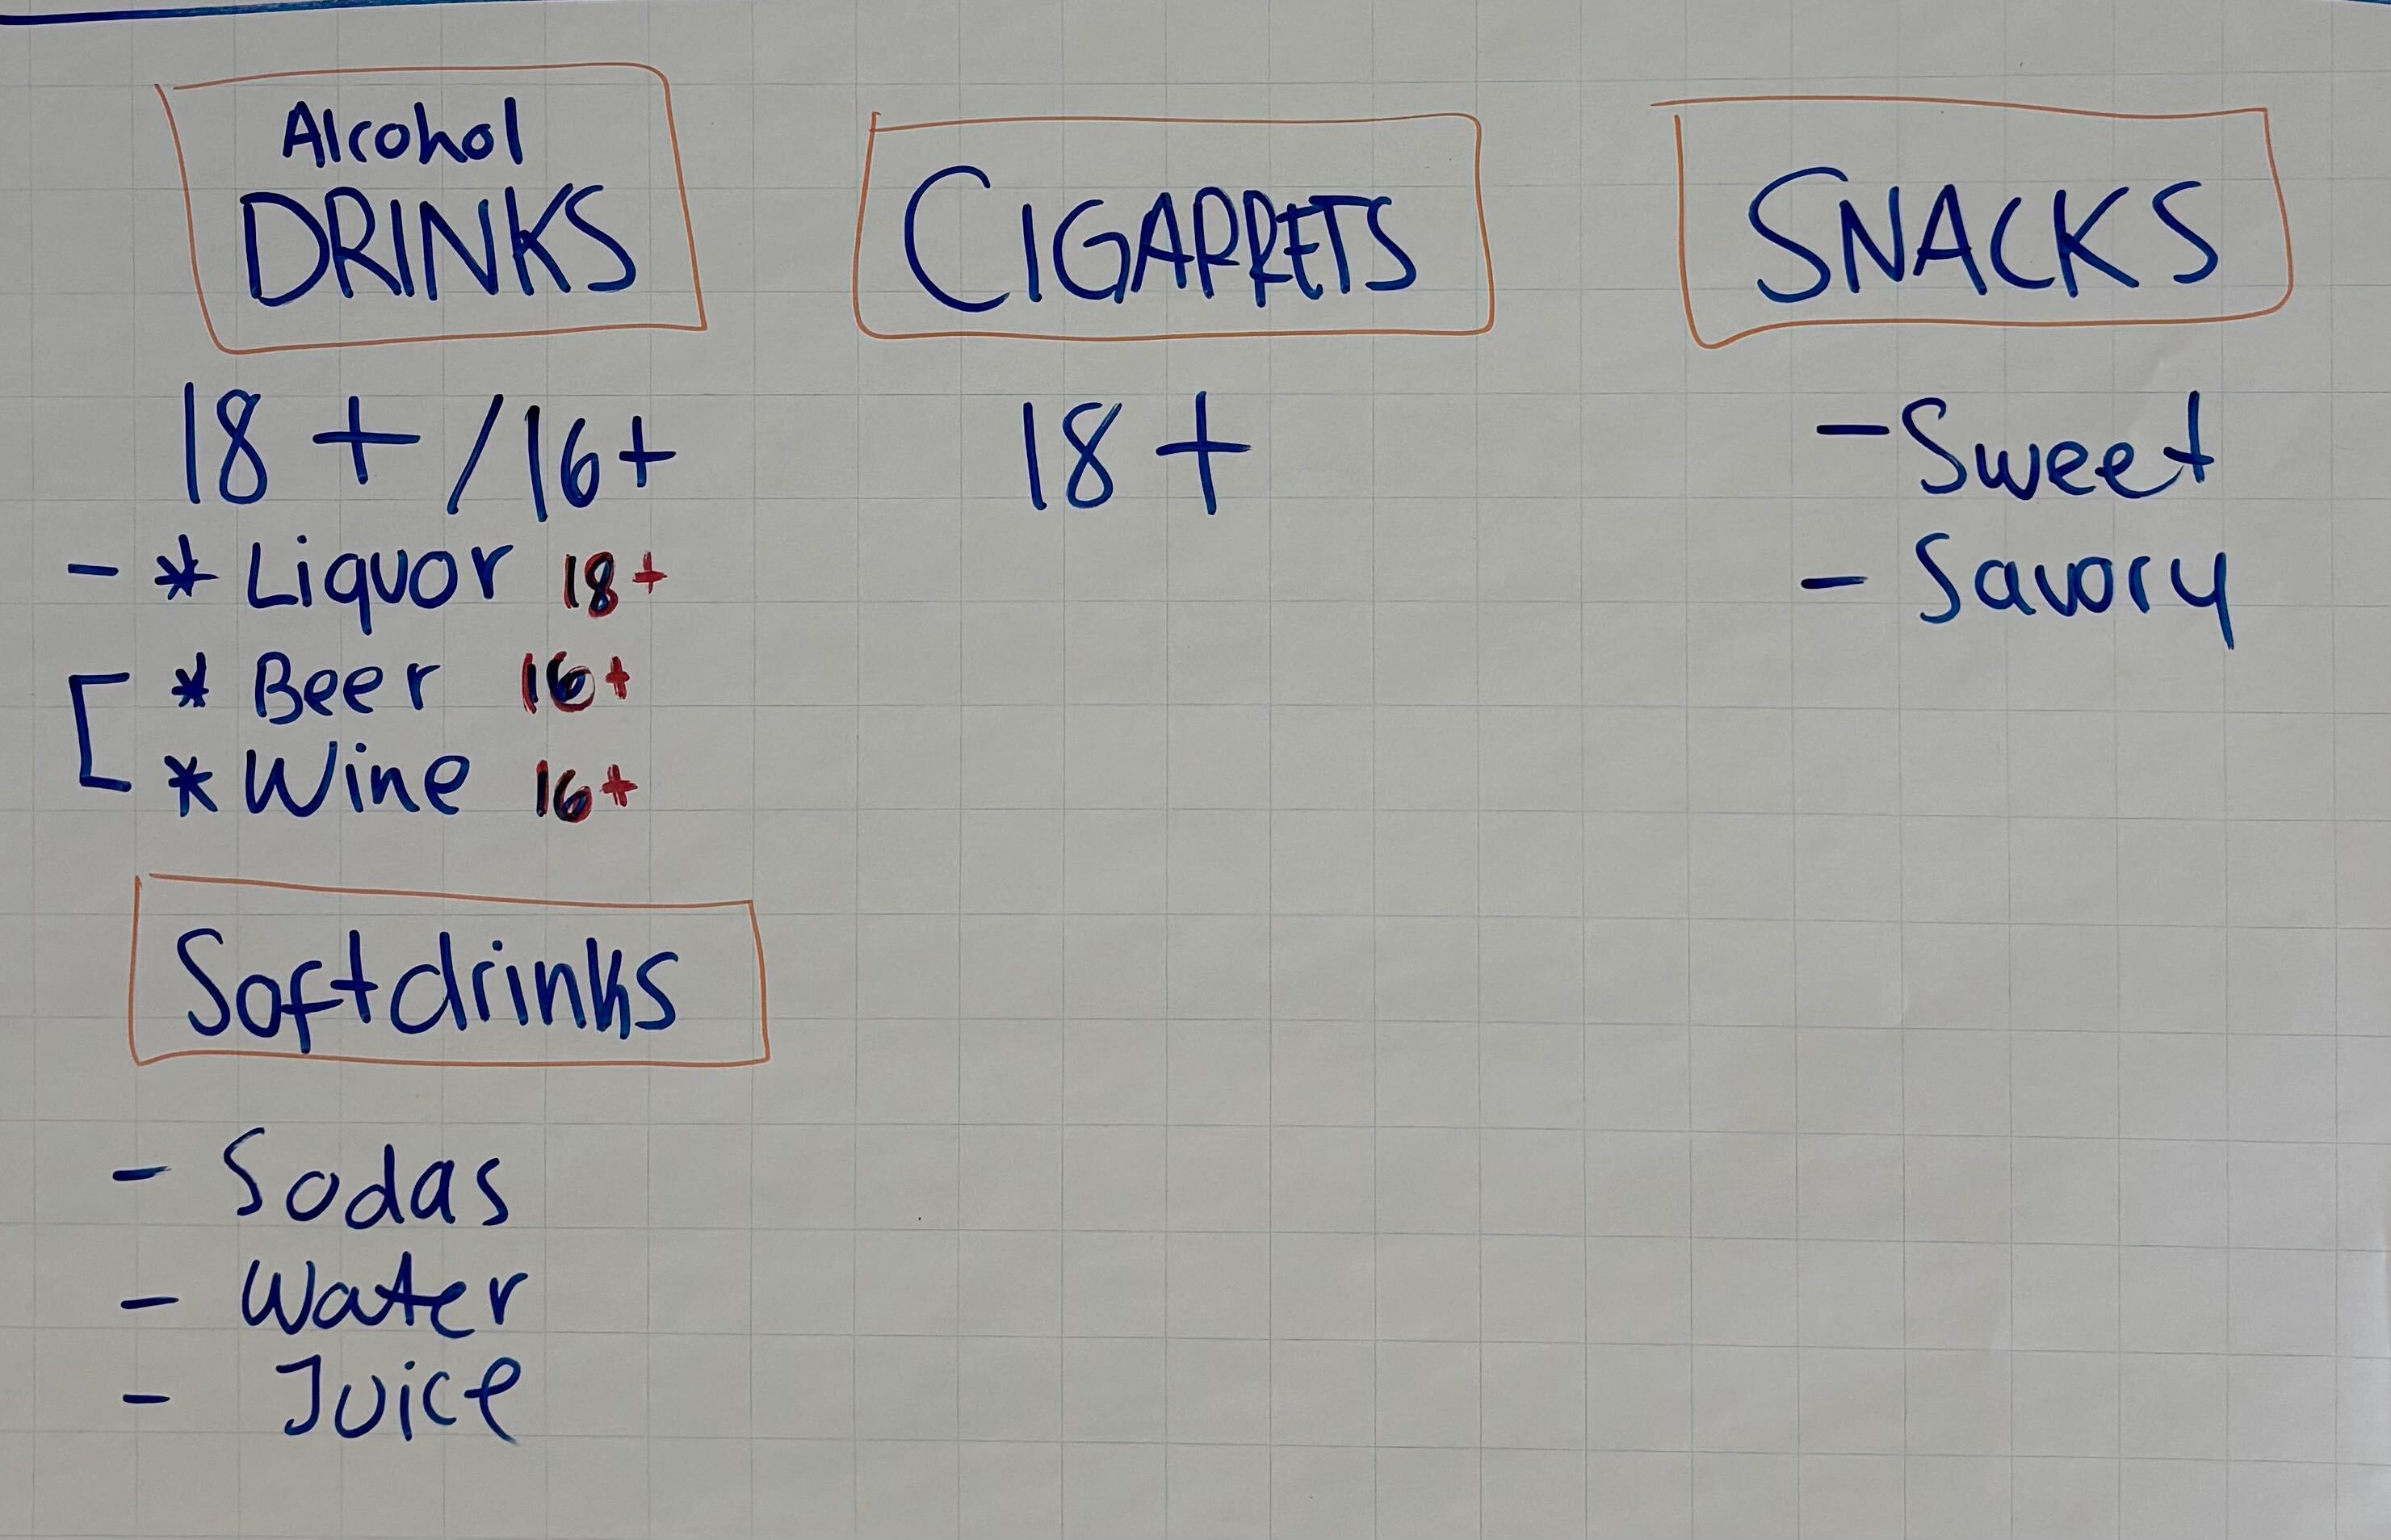 Alcohol
DRINKS
18 + / 16+
- * Liquor 18+
* Beer 16+
* Wine 16+
Softdrinks
- Sodas
- Water
- Juice
CIGARRETS
18 +
SNACKS
- Sweet
- Savory